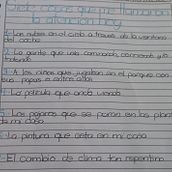 Siete cosas que me llamaron
la atención hoy
1. Las nubes en el cielo a través de la ventana
del coche
2. La gente que iba caminando, corriendo y
3. A los niños que jugaban en el parque con
sus papás
4. La película que andó viendo
5. Los pájaros que se paran en las plantas
de mi casa
6. La pintura que está en mi casa
7. El cambio de clima tan repentino